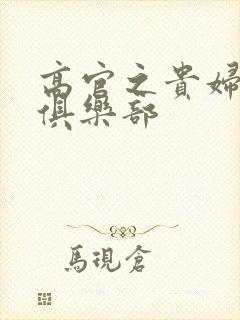 高官之貴婦
俱樂部
馬現倉